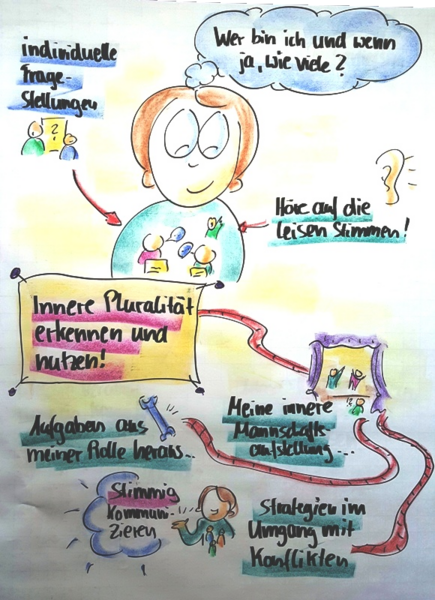 Wer bin ich und wenn
ja, wie viele?
individuelle
Frage-
stellungen
?
Höre auf die
leisen Stimmen!
Innere Pluralität
erkennen und
nutzen!
Aufgaben aus
meiner Rolle heraus...
Meine innere
Mannschafts
aufstellung...
?
Stimmig
Kommuni-
zieren
Strategien im
Umgang mit
Konflikten